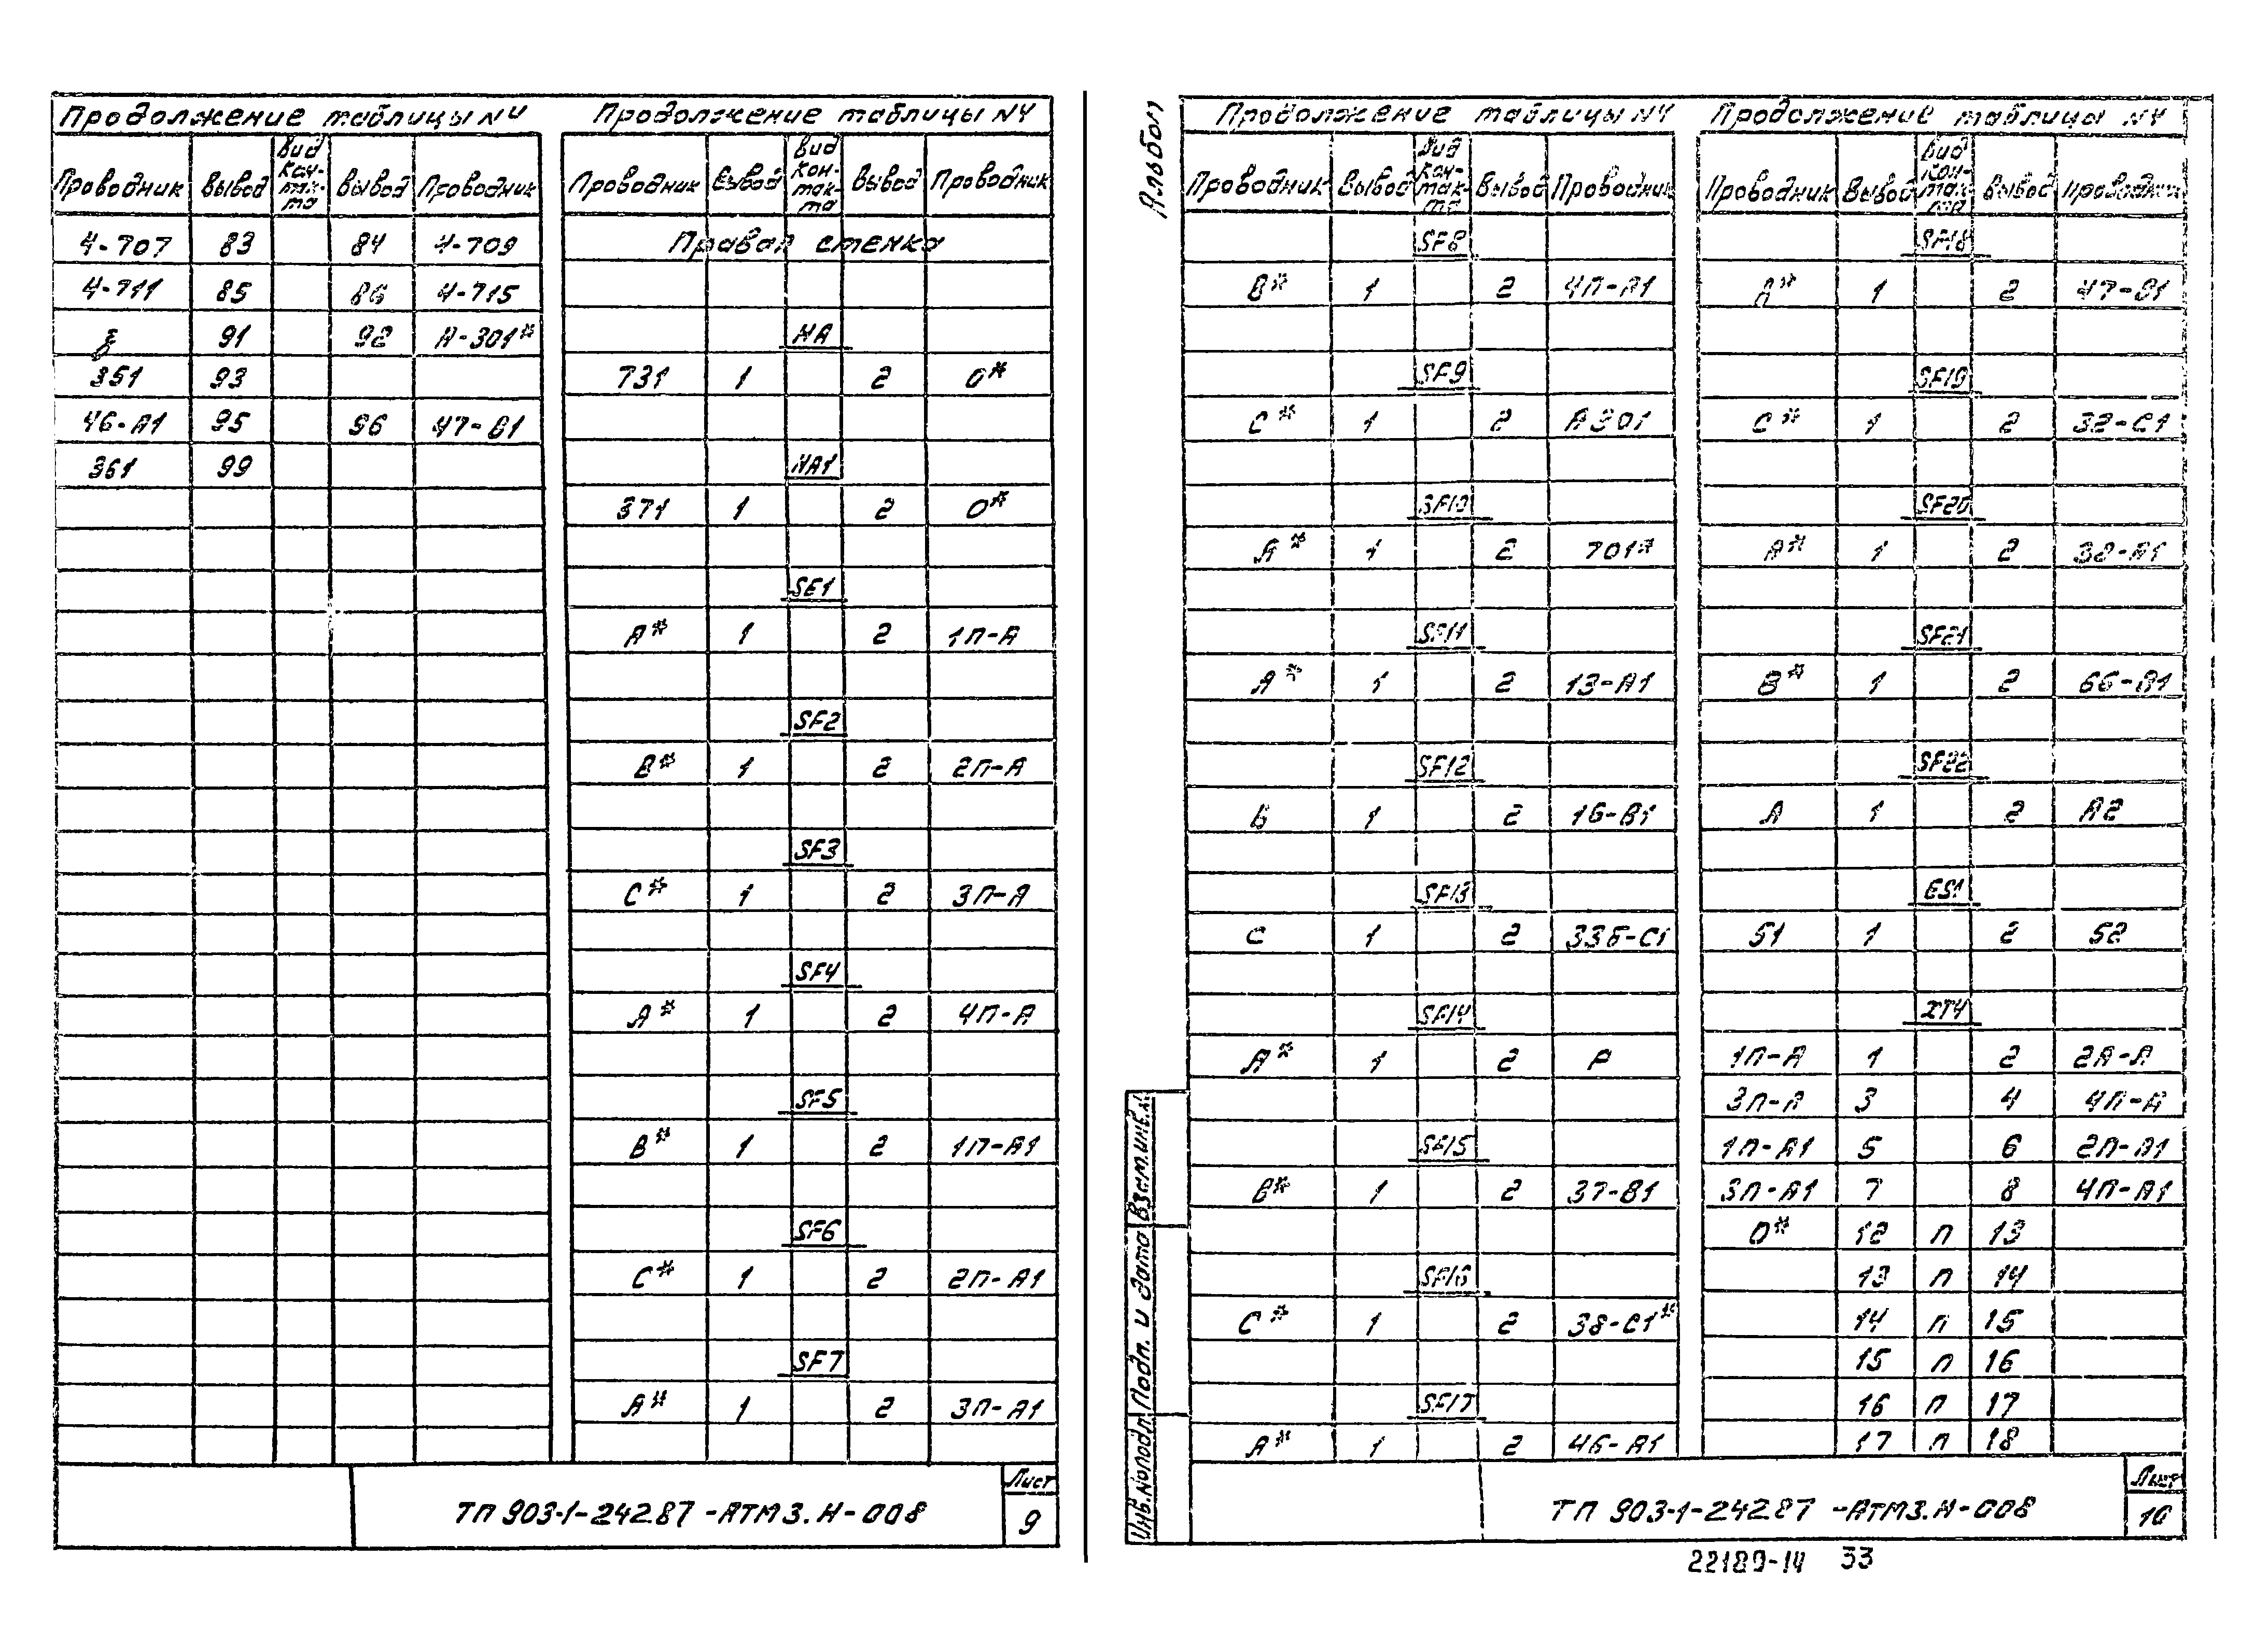 Продолжение таблицы N4
Проводник Вывод Вид кон-так-та Вывод Проводник
4-707 83 84 4-709
4-711 85 86 4-715
91 92 А-301*
351 93
46-А1 95 96 47-В1
361 99
Продолжение таблицы N4
Проводник Вывод Вид кон-так-та Вывод Проводник
Правая стенка
НА
731 1 2 0*
НА1
371 1 2 0*
SF1
А* 1 2 1П-А
SF2
В* 1 2 2П-А
SF3
С* 1 2 3П-А
SF4
А* 1 2 4П-А
SF5
В* 1 2 1П-А1
SF6
С* 1 2 2П-А1
SF7
А* 1 2 3П-А1
ТП 903-1-242.87 -АТМ3.Н-008
Лист
9
Альбом
Продолжение таблицы N4
Проводник Вывод Вид кон-так-та Вывод Проводник
SF8
В* 1 2 4П-А1
SF9
С* 1 2 А301
SF10
А* 1 2 701*
SF11
А* 1 2 13-А1
SF12
1 2 16-В1
SF13
С 1 2 33Б-С1
SF14
А* 1 2 Р
SF15
В* 1 2 37-В1
SF16
С* 1 2 38-С1*
SF17
А* 1 2 46-А1
Продолжение таблицы N4
Проводник Вывод Вид кон-так-та Вывод Проводник
SF18
А* 1 2 47-В1
SF19
С* 1 2 32-С1
SF20
А* 1 2 32-А1
SF21
В* 1 2 66-В1
SF22
А 1 2 А2
ES1
51 1 2 52
XT4
1П-А 1 2 2П-А
3П-А 3 4 4П-А
1П-А1 5 6 2П-А1
3П-А1 7 8 4П-А1
0* 12 П 13
13 П 14
14 П 15
15 П 16
16 П 17
17 П 18
Инв.Nподл. Подп. и дата Взам.инв.N
ТП 903-1-242.87 -АТМ3.Н-008
Лист
10
22189-14 33